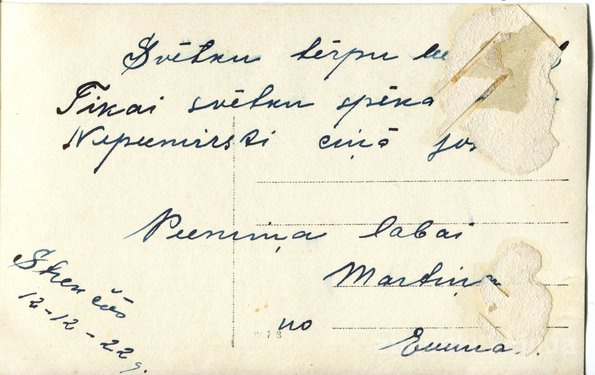 Svētku tērpu
Tikai svētku spēka
Nepiemirsti cīņā
Piemiņa labai
Martiņa
no
Emma
Strenčos
12-12-22g.